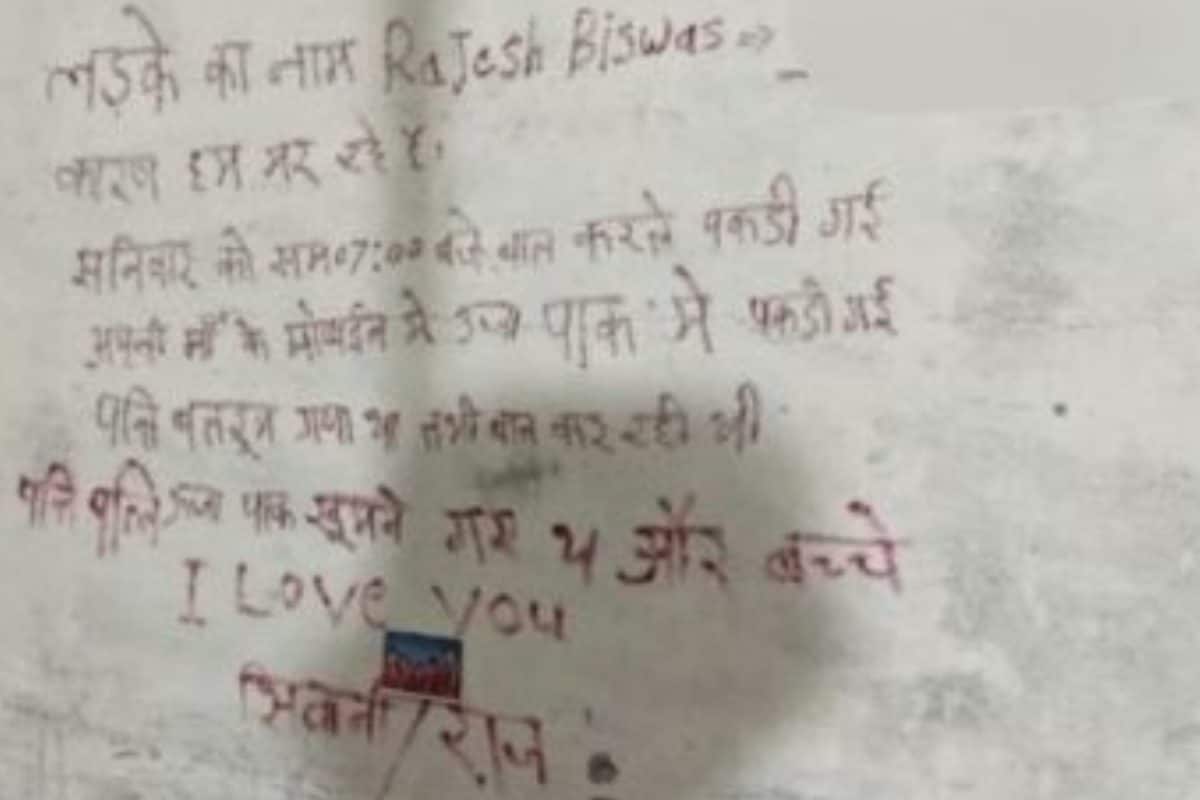 लड़के का नाम Rajesh Biswas ⇒
कारण हम मर रहे है।
सनिवार को 07:00 बजे बात करते पकडी गई
अपनी माँ के मोबाईल मे पाक मे पकडी गई
पति गया था तभी बात कर रही थी
पति पत्नि पाक घूमने गए थे और बच्चे
I Love you
/राज